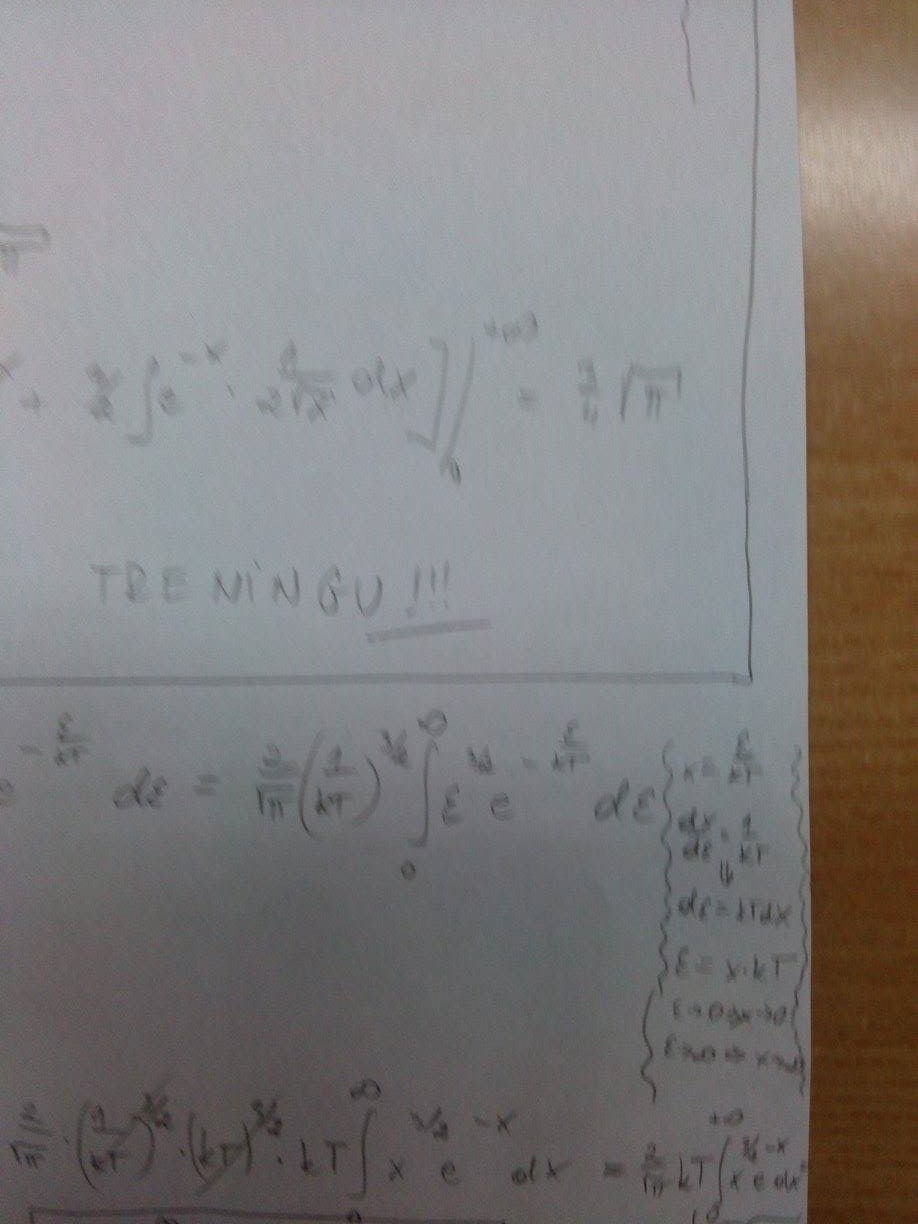 √π
x + 3/2 ∫ e^{-x} · 1/(2√x) dx ]|_0^{+∞} = 3/4 √π
TRENINGU !!!
e^{-ε/kT} dε = 2/√π (1/kT)^{3/2} ∫_0^∞ ε^{3/2} e^{-ε/kT} dε
x = ε/kT
dx/dε = 1/kT
⇓
dε = kTdx
ε = x·kT
ε→0 ⇒ x→0
ε→∞ ⇒ x→∞
2/√π · (1/kT)^{3/2} · (kT)^{3/2} · kT ∫_0^∞ x^{3/2} e^{-x} dx = 2/√π kT ∫_0^{+∞} x^{3/2} e^{-x} dx